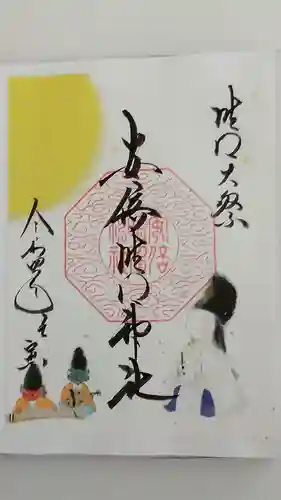 晴明大祭
安倍晴明神社
令和四年壬寅